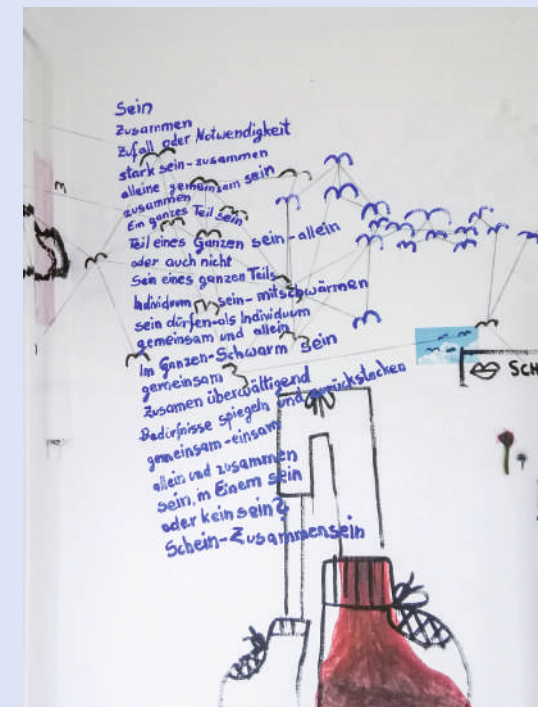 Sein
Zusammen
Zufall oder Notwendigkeit
stark sein - zusammen
alleine gemeinsam sein
zusammen
Ein ganzes Teil sein
Teil eines Ganzen sein - allein
oder auch nicht
Sein eines ganzen Teils
Individuum sein - mitschwärmen
sein dürfen - als Individuum
gemeinsam und allein
Im Ganzen - Schwarm sein
gemeinsam
Zusamen überwältigend
Bedürfnisse spiegeln und zurückstecken
gemeinsam - einsam
allein und zusammen
sein, in Einem sein
oder kein sein?
Schein - Zusammensein
SCH